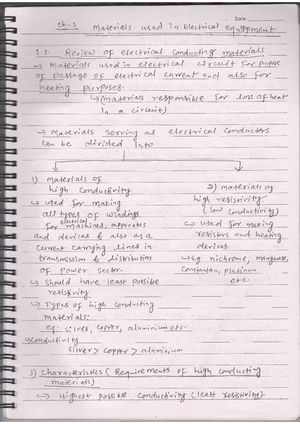 Date
Ch-1 Materials used in Electrical equipment
1.1 Review of electrical conducting materials
→ Materials used in electrical circuit for purpose
of passage of electrical current and also for
heating purposes.
↳ (materials responsible for loss of heat
in a circuit)
→ Materials serving as electrical conductors
can be divided into
1) materials of
high conductivity
↳ used for making
all types of windings
for electrical machines, apparatus
and devices & also as a
current carrying lines in
transmission & distribution
of power sector.
↳ Should have least possible
resistivity
↳ Types of high conducting
materials:
eg: silver, copper, aluminium etc.
2) materials of
high resistivity
(low conductivity)
↳ used for making
resistors and heating
devices.
↳ eg: nichrome, manganese,
Constantan, platinum
etc.
↳ Conductivity
silver > copper > aluminium
1) Characteristics (Requirements of high conducting
materials)
↳ Highest possible conductivity (least resistivity).